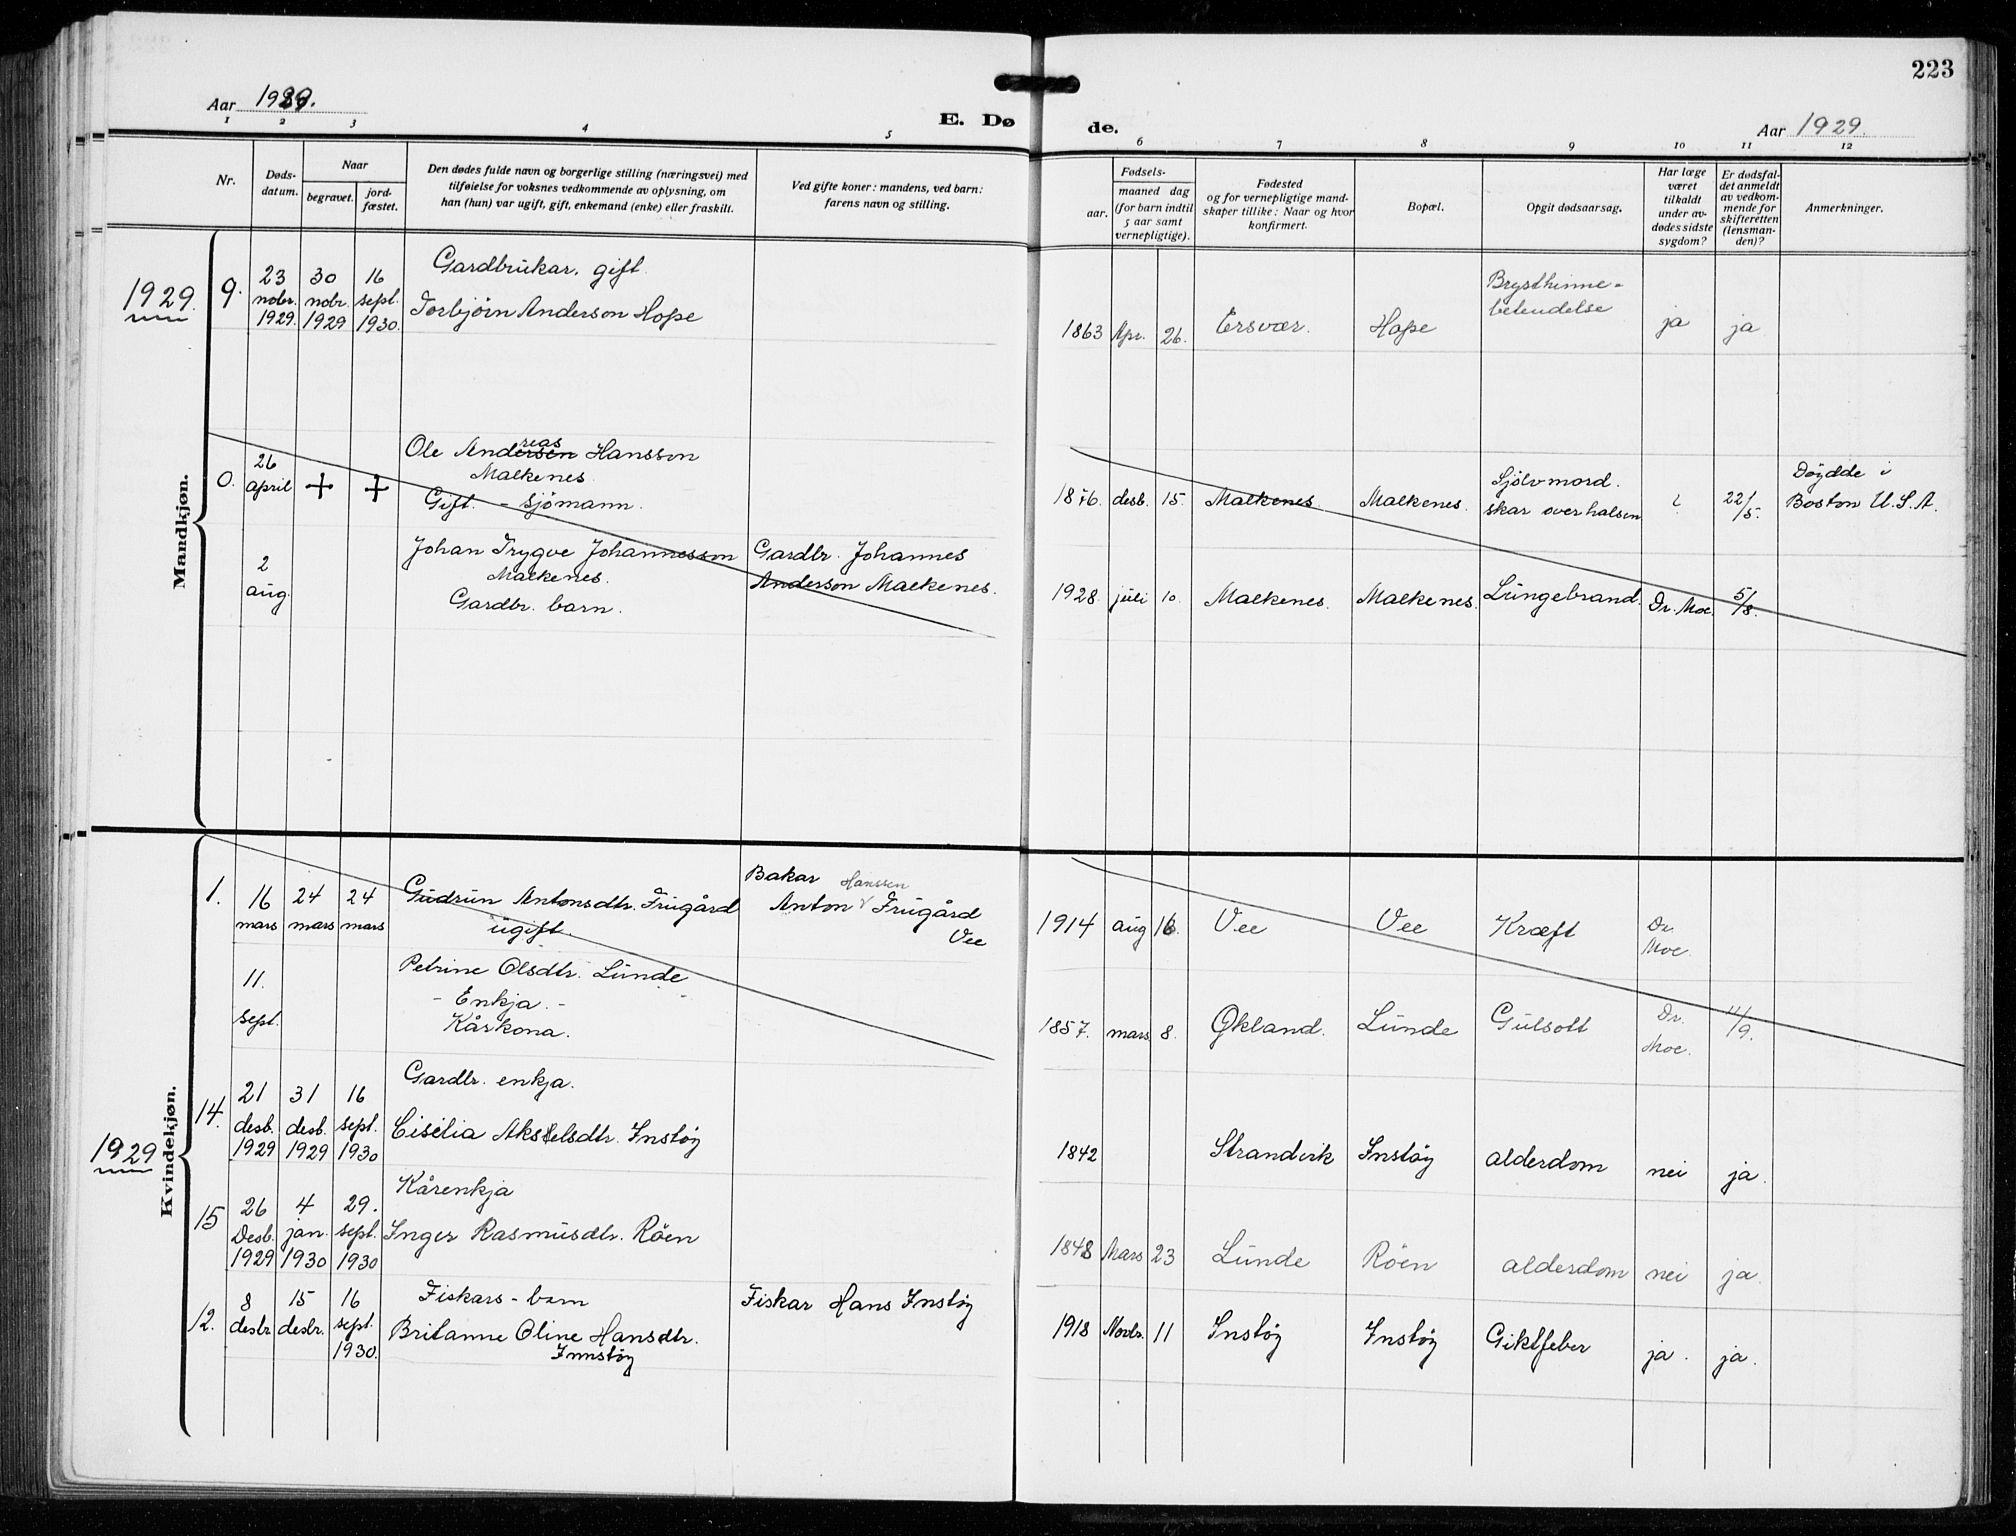 223
Aar 1929.
E. Dø
de.
Aar 1929.
1 2 3 4 5 6 7 8 9 10 11 12
Nr.
Døds-
datum.
Naar
begravet.
jord-
fæstet.
Den dødes fulde navn og borgerlige stilling (næringsvei) med
tilføielse for voksnes vedkommende av oplysning, om
han (hun) var ugift, gift, enkemand (enke) eller fraskilt.
Ved gifte koner: mandens, ved barn:
farens navn og stilling.
Fødsels-
aar.
maaned dag
(for barn indtil
5 aar samt
vernepligtige).
Fødested
og for vernepligtige mand-
skaper tillike: Naar og hvor
konfirmert.
Bopæl.
Opgit dødsaarsag.
Har læge
været
tilkaldt
under av-
dødes sidste
sygdom?
Er dødsfal-
det anmeldt
av vedkom-
mende for
skifteretten
(lensman-
den)?
Anmerkninger.
Mandkjøn.
1929.
9.
23
nobr.
1929.
30
nobr.
1929
16
sept.
1930.
Gardbrukar, gift.
Torbjörn Anderson Hope
1863 Apr. 26.
Ersvær.
Hope
Brysthinne-
betendelse
ja
ja
0.
26
April
+
+
Ole Andersen Hansson
reas
Malkenes.
Gift. - sjömann.
1876. desb. 15.
Malkenes.
Malkenes.
Sjölvmord.
skar over halsen
?
22/5.
Döydde i
Boston U.S.A.
2
aug.
Johan Trygve Johannesson
Malkenes.
Gardbr. barn.
Gardbr. Johannes
Anderson Malkenes.
1928. juli 10.
Malkenes.
Malkenes.
Lungebrand.
Dr. Moe.
5/8.
Kvindekjøn.
1929
1.
16
mars
24
mars
24
mars
Gudrun Antonsdtr. Frugård
ugift.
Bakar
Hanssen
Anton √ Frugård
Vee
1914 aug 16.
Vee
Vee
Kræft
Dr.
Moe.
11.
sept.
Petrine Olsdtr. Lunde
- Enkja. -
Kårkona.
1857. mars 8.
Økland.
Lunde
Gulsott
Dr.
Moe.
11/9.
14.
21
desb.
1929
31
desb.
1929
16
sept.
1930
Gardbr. enkja.
Cisilia Akselsdtr. Instöy
1842
Strandvik
Instöy
alderdom
nei
ja.
15
26
Desb.
1929
4
jan.
1930
29.
sept.
1930
Kårenkja
Inger Rasmusdtr. Röen
1848 Mars 23
Lunde
Röen
alderdom
nei
ja.
12.
8
desbr
15
desbr.
16
sept.
1930.
Fiskars-barn
Britanne Oline Hansdtr.
Innstöy
Fiskar Hans Instöy
1918 Novbr. 11
Instöy
Instöy
Giktfeber
ja.
ja.